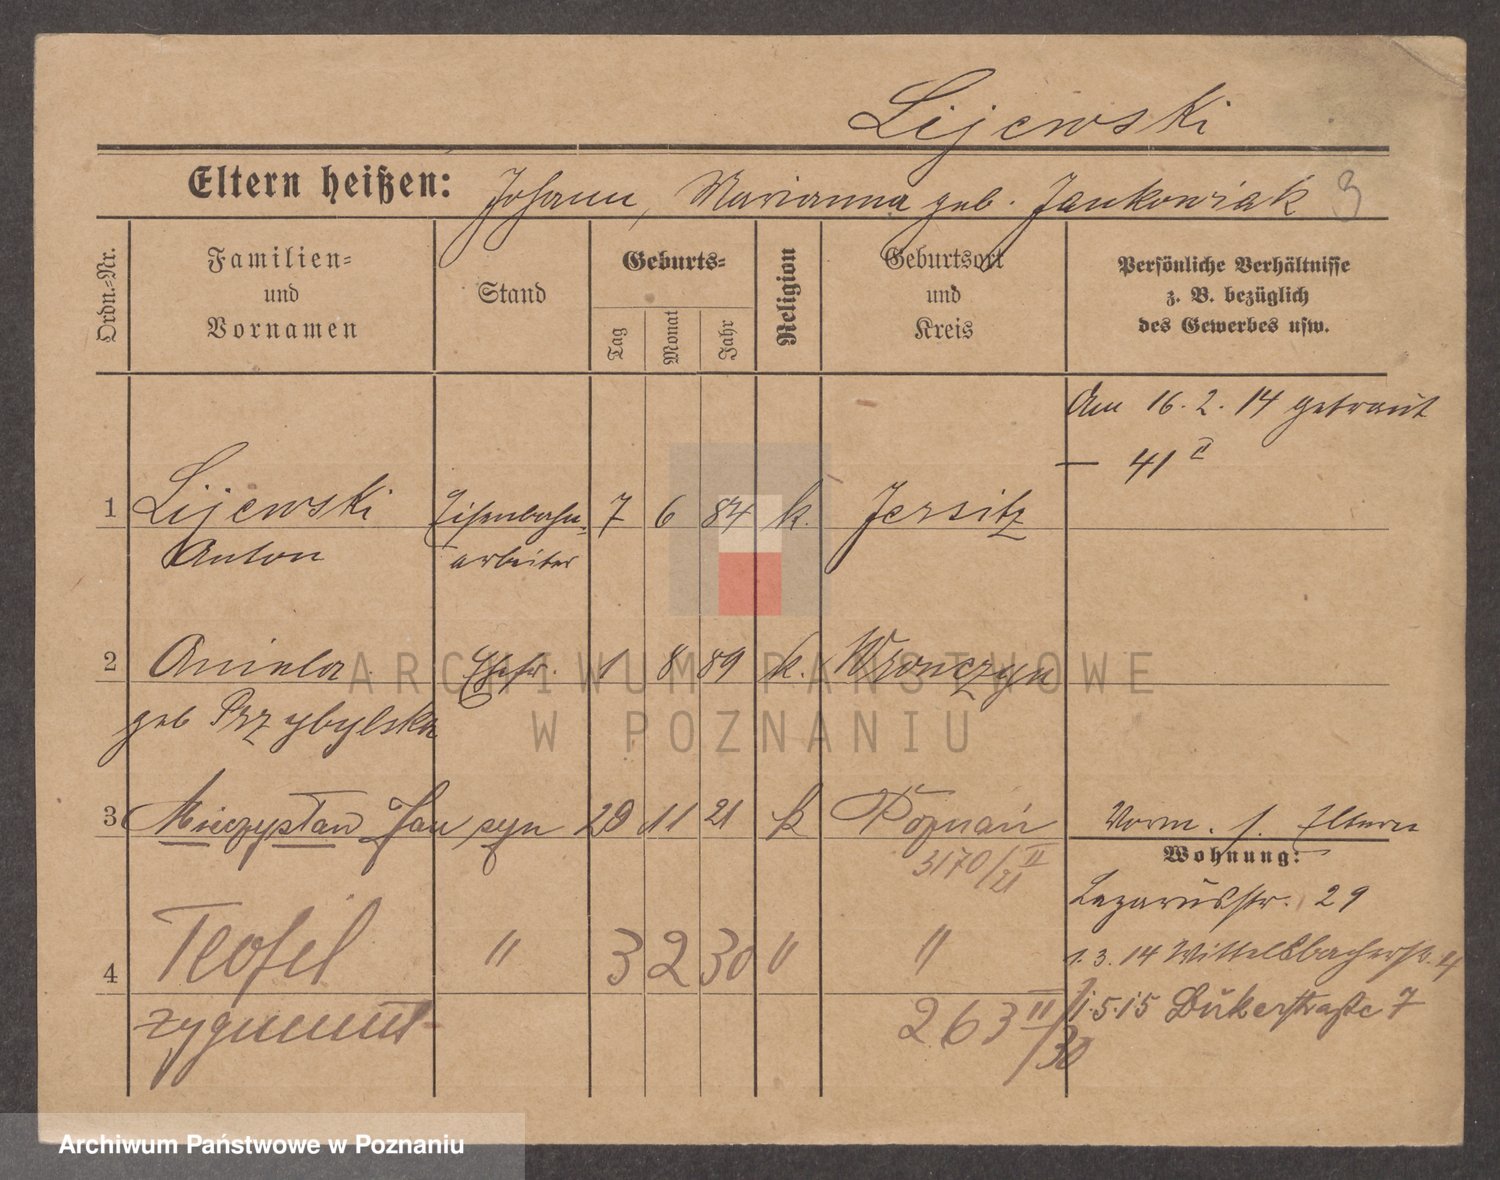 Lijewski
Eltern heißen: Johann, Marianna geb. Jankowiak 3
Ordn.-Nr.
Familien-
und
Vornamen
Stand
Geburts-
Tag
Monat
Jahr
Religion
Geburtsort
und
Kreis
Persönliche Verhältnisse
z. B. bezüglich
des Gewerbes usw.
Am 16. 2. 14 getraut
— 41
1 Lijewski Eisenbahn- 7 6 84 k. Jersitz
Anton arbeiter
2 Aniela Ehefr. 1 8 89 k. Wronczyn
geb Przybylska
3 Mieczysław Jan syn 20 11 21 k Poznań Vorm. s. Eltern
3170/II 21
Wohnung:
Lazarusstr. 29
4 Teofil " 3 2 30 " "
1. 3. 14 Wittelsbacherstr. 4
Zygmunt 263 II/30
1.5.15 Dükerstraße 7
ARCHIWUM PAŃSTWOWE
W POZNANIU
Archiwum Państwowe w Poznaniu